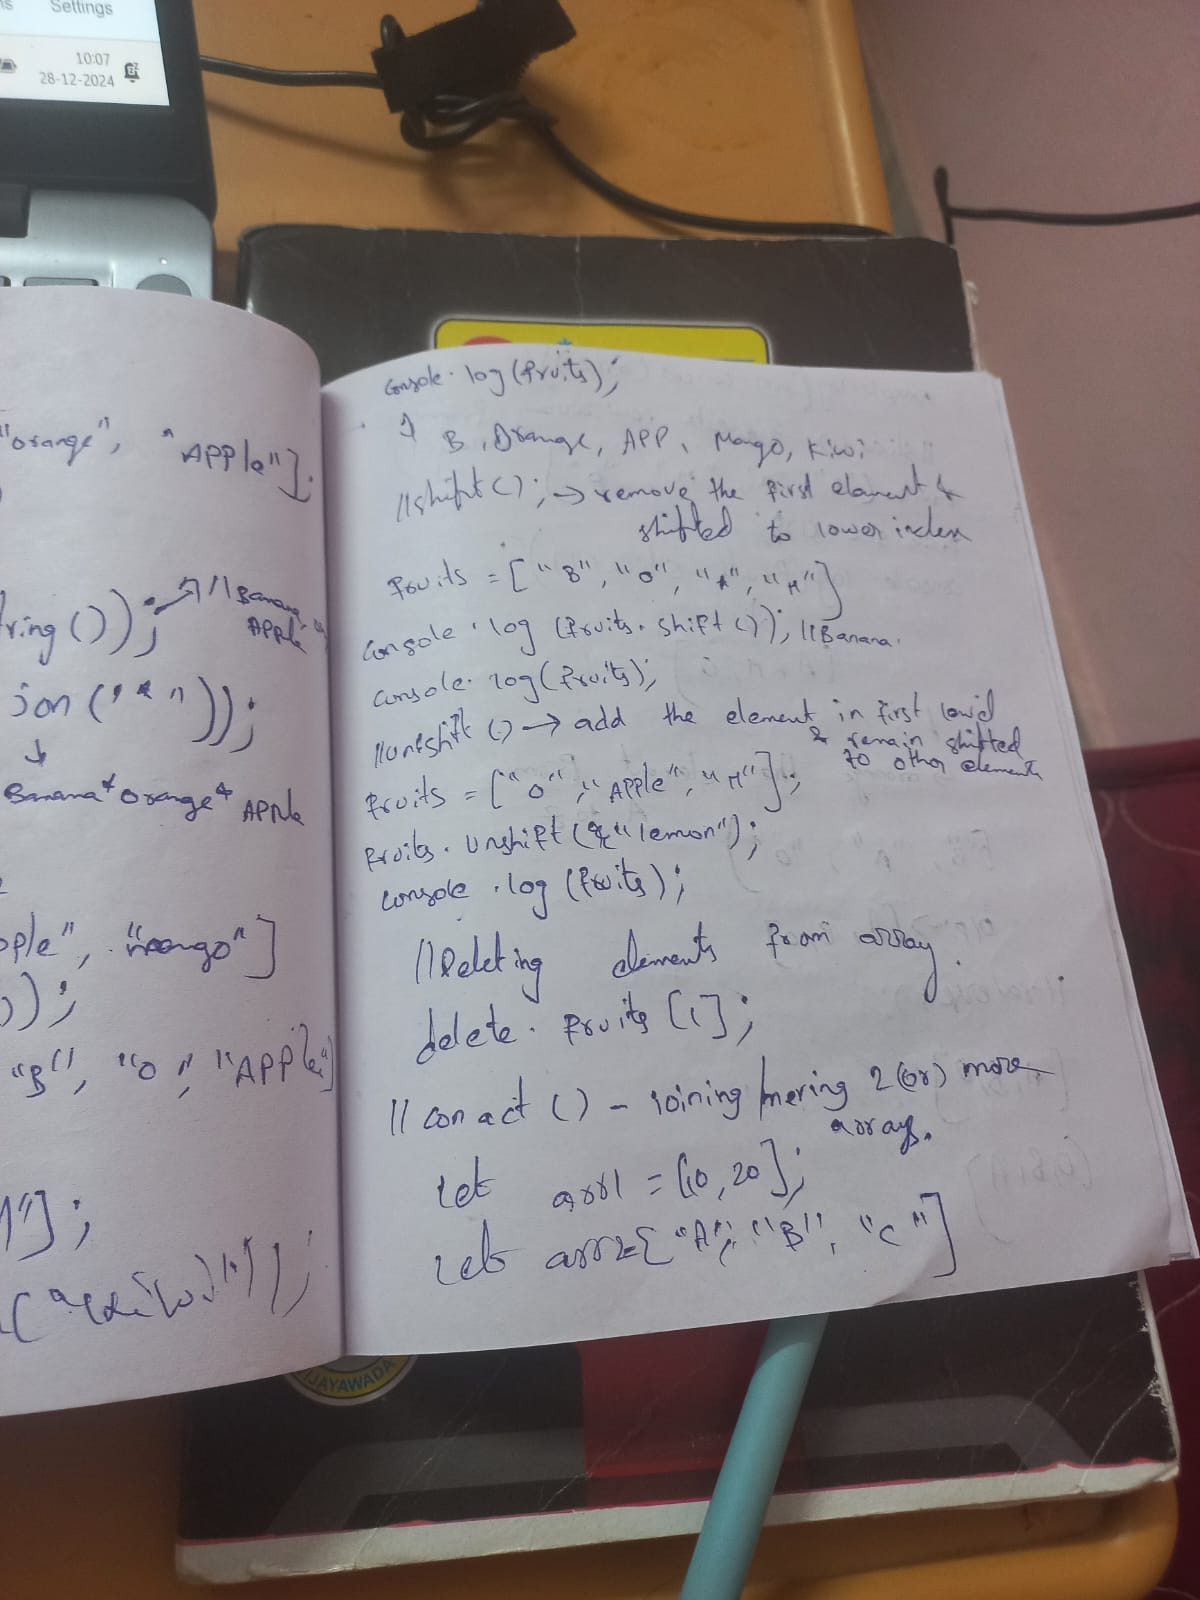 Settings
10:07
28-12-2024
"orange", "APPle"];
ring()); → //Banana,
APPle
jon("*"));
↓
Banana*orange*APPle
pple", "mango"]
);
"B", "O", "APPle"]
"];
("kiwi"));
console.log(fruits);
B, Orange, APP, Mango, Kiwi
//shift(); → remove the first element &
shifted to lower index
fruits = ["B", "O", "A", "M"]
console.log(fruits.shift()); //Banana.
console.log(fruits);
//unshift() → add the element in first
& remain shifted
to other elements
fruits = ["O", "APPle", "M"];
fruits.unshift("lemon");
console.log(fruits);
//Deleting elements from array.
delete. fruits[1];
//conact() - joining/mering 2(or) more
arrays.
let arr1 = [10,20];
let arr2["A", "B", "C"]
IJAYAWADA